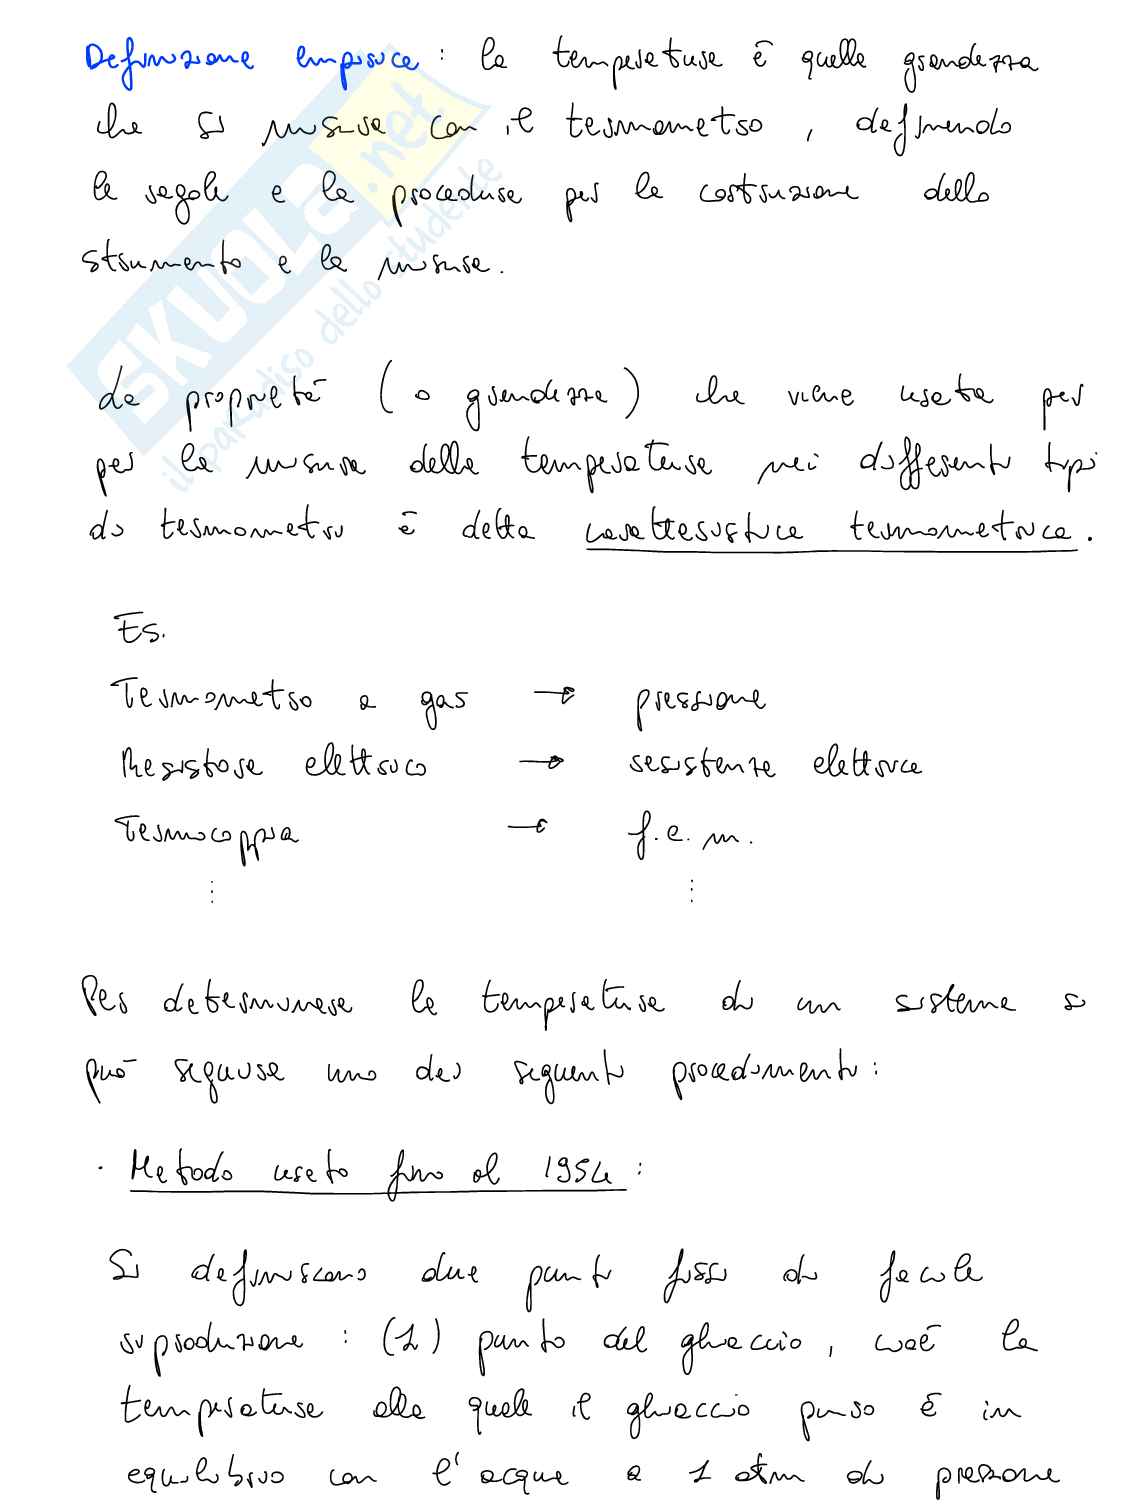 Definizione empirica : la temperatura è quella grandezza
che si misura con il termometro , definendo
le regole e le procedure per la costruzione dello
strumento e la misura.
SKUOLA.net
il paradiso dello studente
La proprietà ( o grandezza ) che viene usata per
per la misura della temperatura nei differenti tipi
di termometri è detta caratteristica termometrica.
Es.
Termometro a gas → pressione
Resistore elettrico → resistenza elettrica
Termocoppia → f.e.m.
⋮ ⋮
Per determinare la temperatura di un sistema si
può seguire uno dei seguenti procedimenti :
· Metodo usato fino al 1954 :
Si definiscono due punti fissi di facile
riproduzione : (1) punto del ghiaccio, cioè la
temperatura alla quale il ghiaccio puro è in
equilibrio con l'acqua a 1 atm di pressione